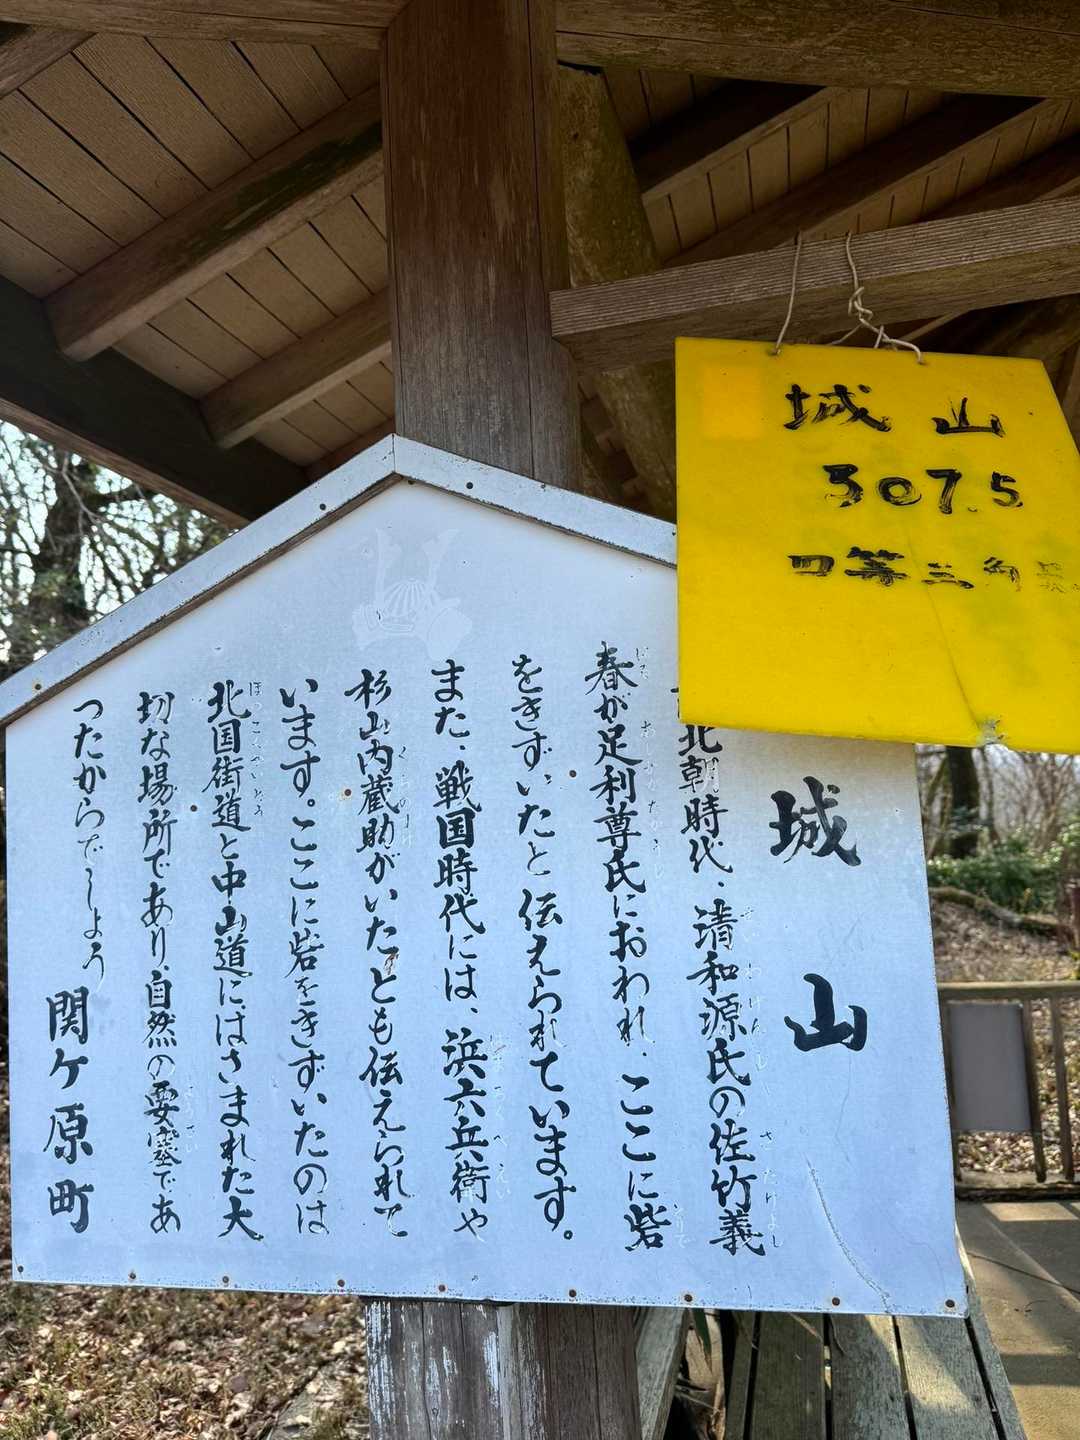 城山
307.5
四等三角
城山
北朝時代、清和源氏の佐竹義
春が足利尊氏におわれ、ここに砦
をきずいたと伝えられています。
また、戦国時代には、浜六兵衛や
杉山内蔵助がいたとも伝えられて
います。ここに砦をきずいたのは
北国街道と中山道にはさまれた大
切な場所であり、自然の要塞であ
ったからでしょう
関ケ原町